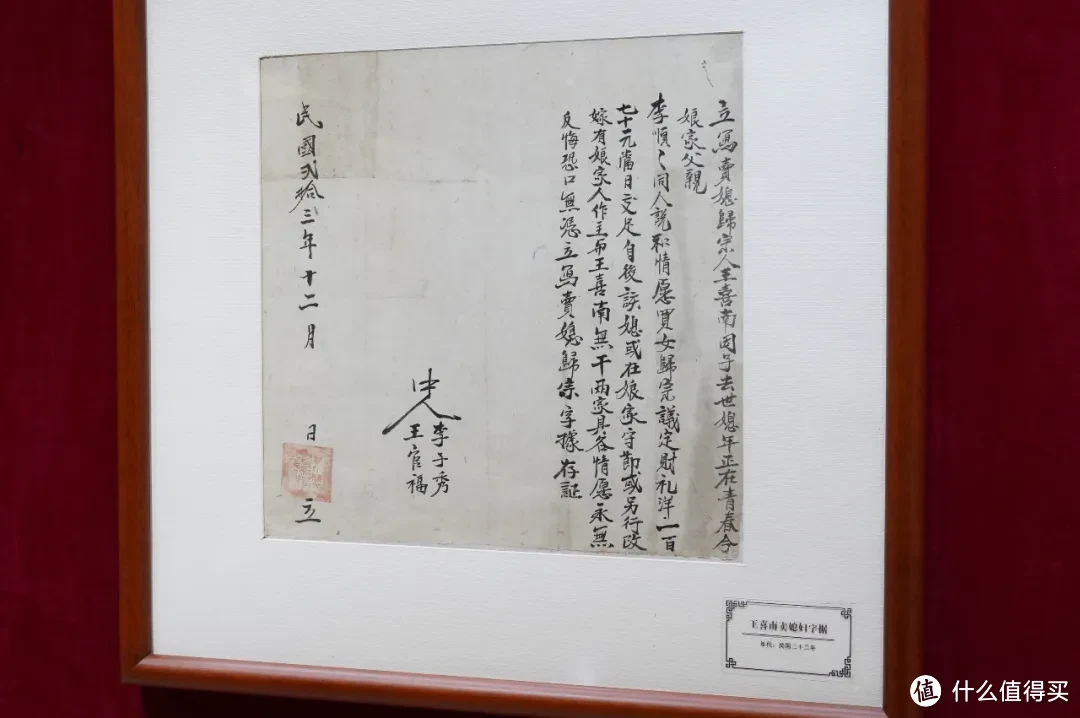 立寫賣媳歸宗人王喜南因子去世媳年正在青春今
娘家父親
李順〻同人説和情愿買女歸宗議定財礼洋一百
七十元當日交足自後該媳或在娘家守節或另行改
嫁有娘家人作主与王喜南無干兩家具各情愿永無
反悔恐口無憑立寫賣媳歸宗字據存証
中人
李子秀
王官福
民國弍拾三年十二月 日 立
王喜南卖媳妇字据
年代：民国二十三年
值 什么值得买